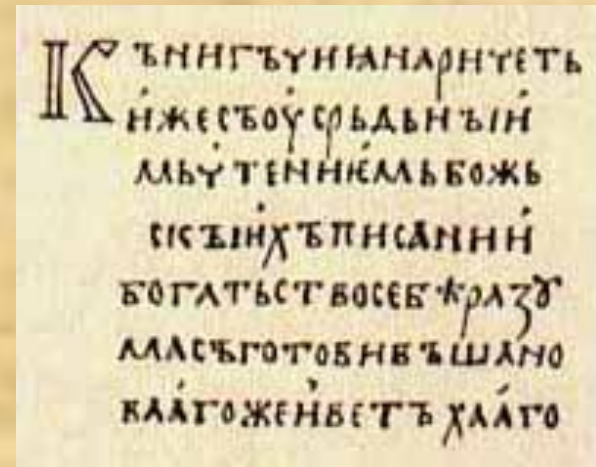 КЪНИГЪЧИꙖНАРИЧЕТЬ
И́ЖЕСЪОУ́СРЬДЬНЪІИ́
МЬЧТЕНИѤ́МЬБОЖЬ
СКЪІИ́ХЪПИСАНИИ́
БОГАТЬСТВОСЕБѢРАЗꙊ
МАСЪГОТОВИВЪША́НО
ВАА́ГОЖЕИ́ВЕТЪХАА́ГО